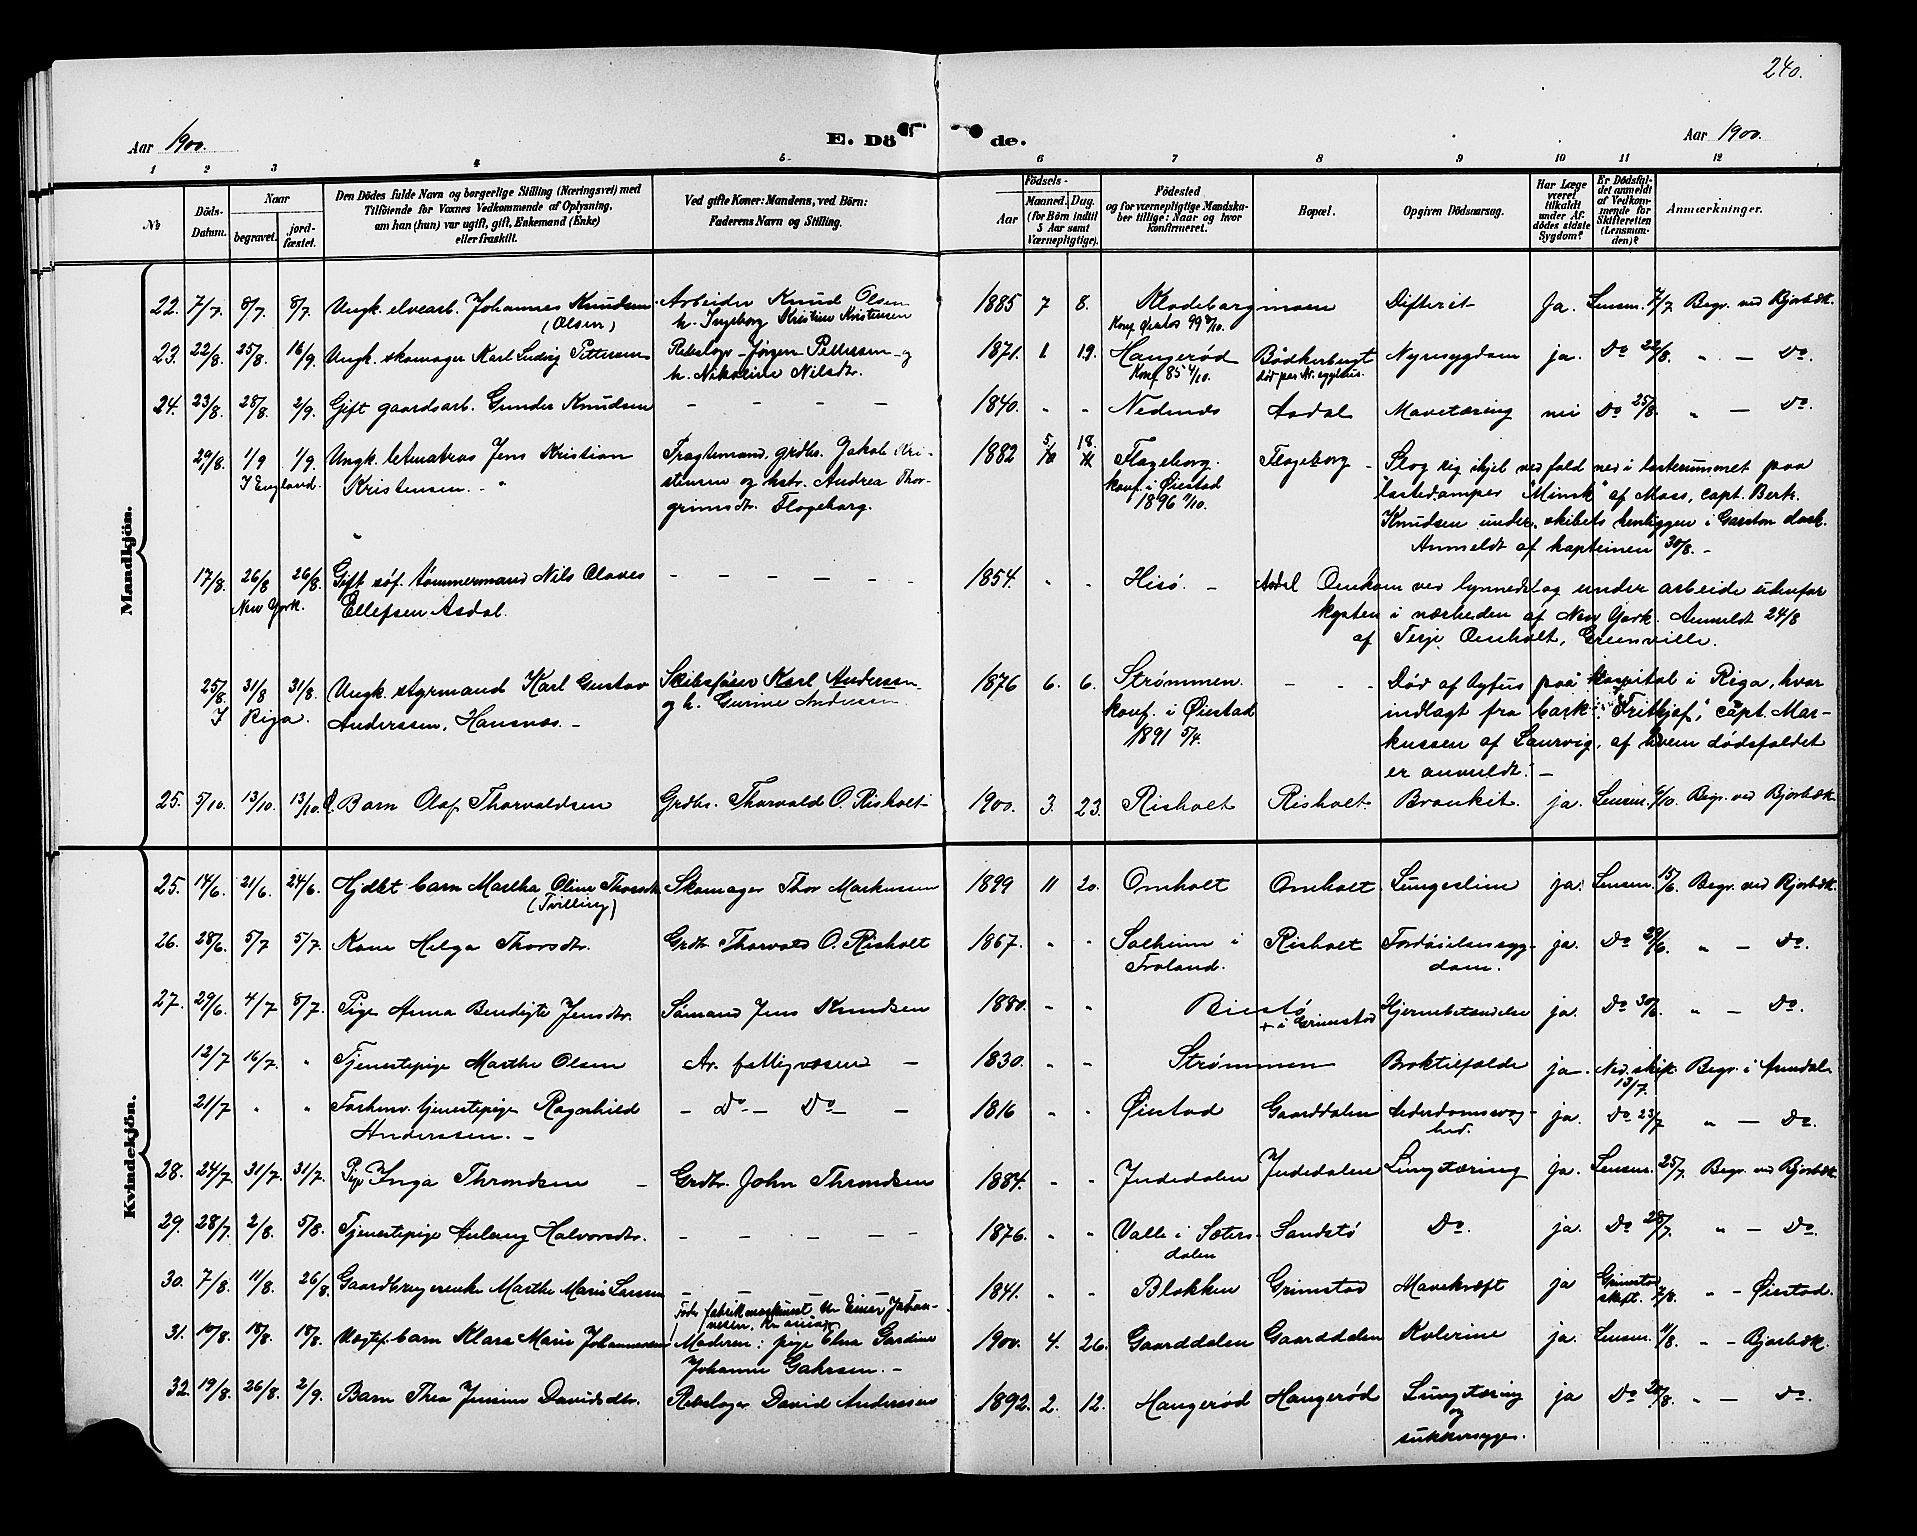 240.
Aar 1900.
E. Dö de.
Aar 1900.
1 2 3 4 5 6 7 8 9 10 11 12
№
Döds-Datum.
Naar
begravet.
jord-fæstet.
Den Dödes fulde Navn og borgerlige Stilling (Næringsvei) med
Tilföiende for Voxnes Vedkommende af Oplysning,
om han (hun) var ugift, gift, Enkemand (Enke)
eller fraskilt.
Ved gifte Koner: Mandens, ved Börn:
Faderens Navn og Stilling.
Födsels-
Aar
Maaned. Dag.
(for Börn indtil
5 Aar samt
Værnepligtige).
Födested
og for værnepligtige Mandska-
ber tillige: Naar og hvor
konfirmeret.
Bopæl.
Opgiven Dödsaarsag.
Har Læge
været
tilkaldt
under Af-
dödes sidste
Sygdom?
Er Dödsfal-
det anmeldt
af Vedkom-
mende for
Skifteretten
(Lensman-
den)?
Anmærkninger.
Mandkjön.
22. 7/7. 8/7. 8/7. Ungk. elvearb. Johannes Knudsen Arbeider Knud Olsen 1885 7 8. Klodeborgmoen Difterit Ja. Lensm. 7/7 Begr. ved Bjorbæk.
(Olsen) h. Ingeborg Kristine Kristensen Konf. Øiestad 99
23. 22/8. 25/8. 16/9. Ungk. skomager Karl Ludvig Pettersen Rebslager Jørgen Pettersen og 1871. 1 19. Hangerød Bødkerbergt Nyresygdom ja. Do 22/8. " — Do.
h. Nikoline Nilsdtr. Konf. 85 4/10.
24. 23/8. 28/8. 2/9. Gift gaardsarb. Gunder Knudsen — — — — 1840. " " Nedenes Asdal Mavetæring nei Do 25/8. " — Do.
29/8. 1/9 1/9. Ungk. letmatros Jens Kristian Fragtemand, grdbr. Jakob Kri- 1882 5 18. Flageborg. Flageborg Slog sig ihjel ved fald ned i lasterummet paa
I England. Kristensen. stensen og hstr. Andrea Thor- konf. i Øiestad lastedamper "Minsk" af Moss, capt. Berk.
grimsdtr. Flageborg. 1896 Knudsen under skibets henliggen i Garston dock.
Anmeldt af kapteinen 30/8.
17/8. 26/8 26/8. Gift søf. tømmermand Nils Olaves — — — — — — 1854. " " Hisø. Asdal Omkom ved lynnedslag under arbeide udenfor
New York. Ellefsen Asdal. kysten i nærheden af New York. Anmeldt 24/8
af Terje Omholt, Greenville.
25/8 31/8 31/8. Ungk. styrmand Karl Gustav Skibsfører Karl Anderssen 1876 6. 6. Strømmen. — — Død af tyfus paa hospital i Riga, hvor
I Riga. Anderssen, Hansnæs. og h. Gurine Anderssen konf. i Øiestad indlagt fra bark "Frithjof", capt. Mar-
1891 5/4. kussen af Laurvig, af hvem dødsfaldet
er anmeldt.
25. 5/10. 13/10. 13/10. Barn Olaf Thorvaldsen Grdbr. Thorvald O. Risholt 1900. 3. 23. Risholt Risholt. Bronkit. ja. Lensm. 6/10. Begr. ved Bjorbæk.
Kvindekjön.
25. 14/6. 21/6. 24/6. Martha Oline Thorsdtr. Skomager Thor Markussen 1899 11 20. Omholt Omholt ja. Lensm. 15/6. Begr. ved Bjorbæk.
(Tvilling)
26. 28/6. 5/7 5/7. Kone Helga Thorsdtr. Grdbr. Thorvald O. Risholt 1867. " " Solheim i Risholt Fordøielsessyg- ja. Do 29/6. " — Do.
Froland. dom.
27. 29/6. 4/7 8/7. Pige Anna Bendigte Jensdtr. Sømand Jens Knudsen 1880. " " Biestø Hjernebetændelse ja. Do 30/6. " — Do.
+ i Grimstad
12/7 16/7. " Tjenestepige Marthe Olsen Ar. fattigvæsen — 1830. " " Strømmen Broktilfælde ja. Ned. skift. Begr. i Arendal.
13/7.
21/7 " " Forhenv. tjenestepige Ragnhild — Do — Do — 1816 " " Øiestad Gaarddalen Alderdomssvag- ja. Do 23/7 " — Do.
Anderssen. hed.
28. 24/7 31/7. 31/7. Pige Inga Throndsen — Grdbr. John Throndsen 1884. " " Judedalen Judedalen Lungtæring ja. Lensm. 25/7. Begr. ved Bjorbæk.
29. 28/7. 2/8. 5/8. Tjenestepige Aslaug Halvorsdtr. — — — — 1876. " " Valle i Sæters- Sandstø Do. ja. Do 28/7. " — Do.
dalen
30. 7/8. 11/8. 26/8. Gaardbrugerenke Marthe Marie Larsen — — — — 1841. " " Blokken Grimstad Mavekræft ja Grimstad " - Øiestad.
skift.
Fader fabrikmaskinist Einar Johan-
nesen,
31. 10/8. 18/8. 18/8. Uægtef. barn Klara Marie Johannessen Moderen: pige Elna Gardine 1900. 4. 26. Gaarddalen Gaarddalen Kolerine ja. Lensm. 11/8. " - Bjorbæk.
Johanne Gahrsen.
32. 19/8. 26/8. 2/9. Barn Thea Jensine Davidsdtr. Rebslager David Anderssen 1892. 2. 12. Hangerød Hangerød Lungtæring ja Do 20/8. " — Do.
og
sukkersyge.